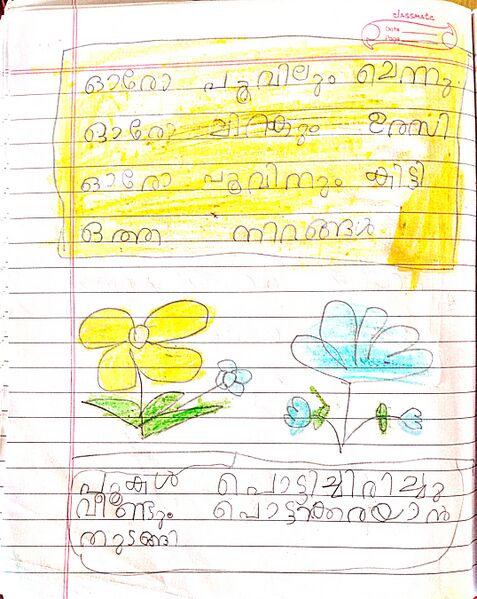 classmate
Date
Page
ഓരോ പൂവിലും ചെന്നു
ഓരോ ചിറകും ഉരസി
ഓരോ പൂവിനും കിട്ടി
ഒത്ത നിറങ്ങൾ
പൂക്കൾ പൊട്ടിച്ചിരിച്ചു
വീണ്ടും പൊട്ടിക്കരയാൻ
തുടങ്ങി